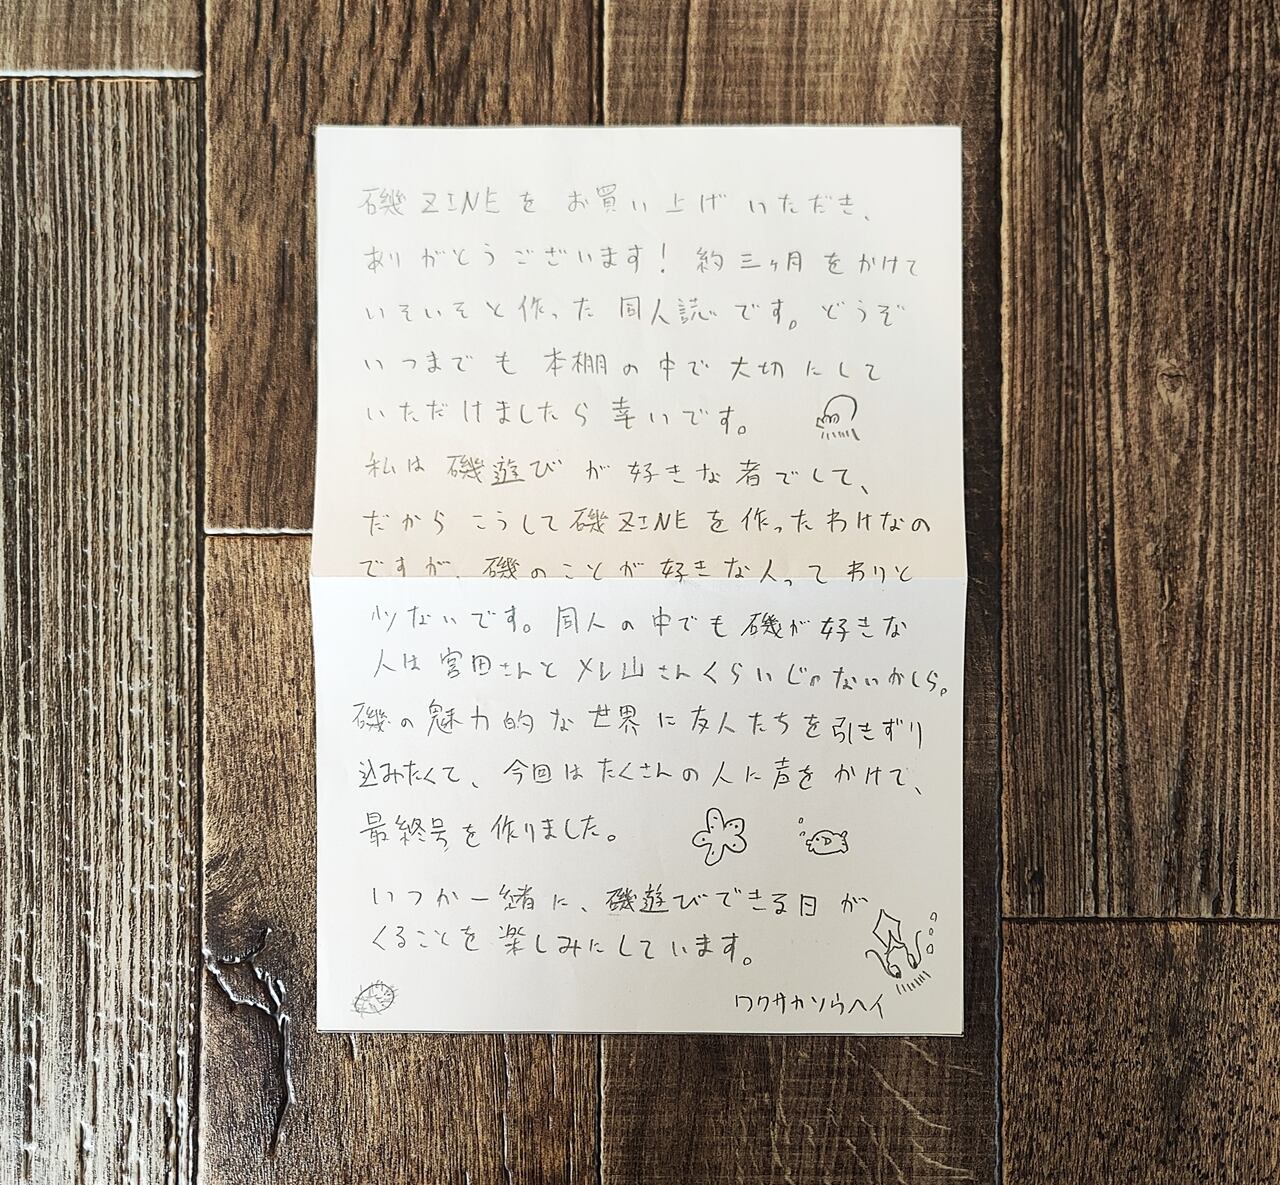 磯ZINEをお買い上げいただき、
ありがとうございます！約三ヶ月をかけて
いそいそと作った同人誌です。どうぞ
いつまでも本棚の中で大切にして
いただけましたら幸いです。
私は磯遊びが好きな者でして、
だからこうして磯ZINEを作ったわけなの
ですが、磯のことが好きな人ってわりと
少ないです。同人の中でも磯が好きな
人は宮田さんとメレ山さんくらいじゃないかしら。
磯の魅力的な世界に友人たちを引きずり
込みたくて、今回はたくさんの人に声をかけて、
最終号を作りました。
いつか一緒に、磯遊びできる日が
くることを楽しみにしています。
ワクサカソウヘイ